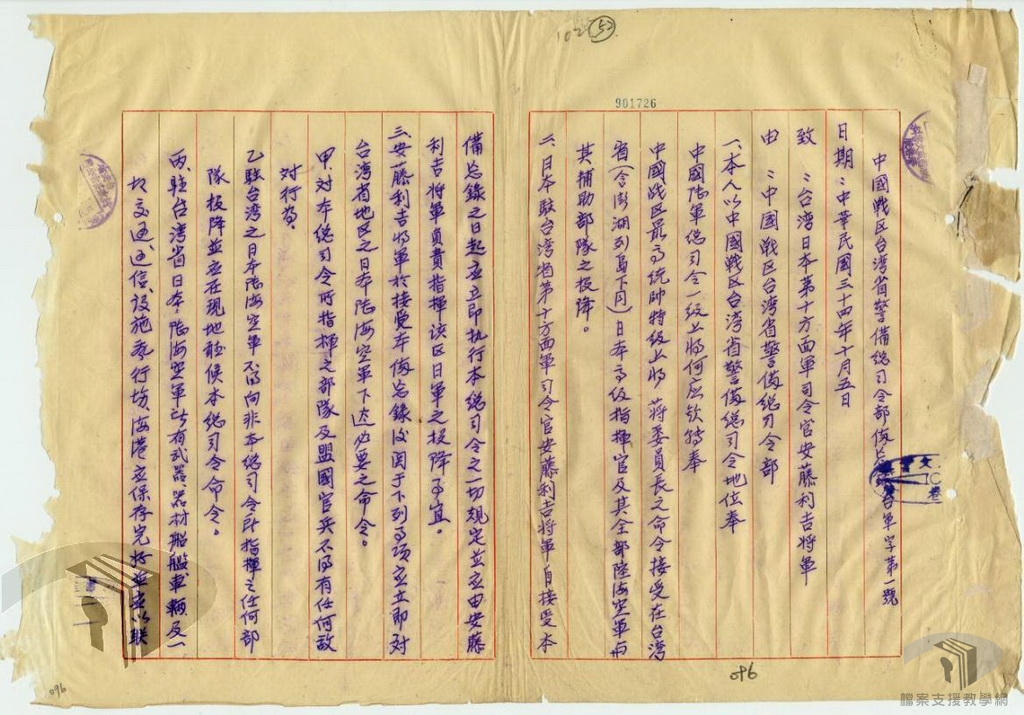 102 52
901726
中國戰区台湾省警備總司令部俻 台軍字第一號
日期：中華民國三十四年十月五日
致：台湾日本第十方面軍司令官安藤利吉將軍
由：中國戰区台湾省警俻總司令部
一、本人以中國戰区台湾省警俻總司令地位奉
中國陸軍總司令一級上將何应钦轉奉
中國战区最高統帥特級上將 蔣委員長之命令接受在台湾
省(含澎湖列島下同)日本高級指揮官及其全部陸海空軍与
其補助部隊之投降。
二、日本駐台湾省第十方面軍司令官安藤利吉將軍自接受本
備忘錄之日起应立即执行本總司令之一切規定並应由安藤
利吉將軍負責指揮该区日軍之投降事宜。
三、安藤利吉將軍於接受本俻忘錄後因于下列事項应立即对
台湾省地区之日本陆海空軍下达必要之命令。
甲、对本總司令所指揮之部隊及盟國官兵不得有任何敌
对行為。
乙、駐台湾之日本陸海空軍不得向非本總司令所指揮之任何部
隊投降並应在現地聽候本總司令命令。
丙、駐台湾省日本陆海空軍所有武器、器材、船艦、車輛及一
切交通、通信、设施、飛行坊、海港应保存完好並应以联
096
096
檔案支援教學網